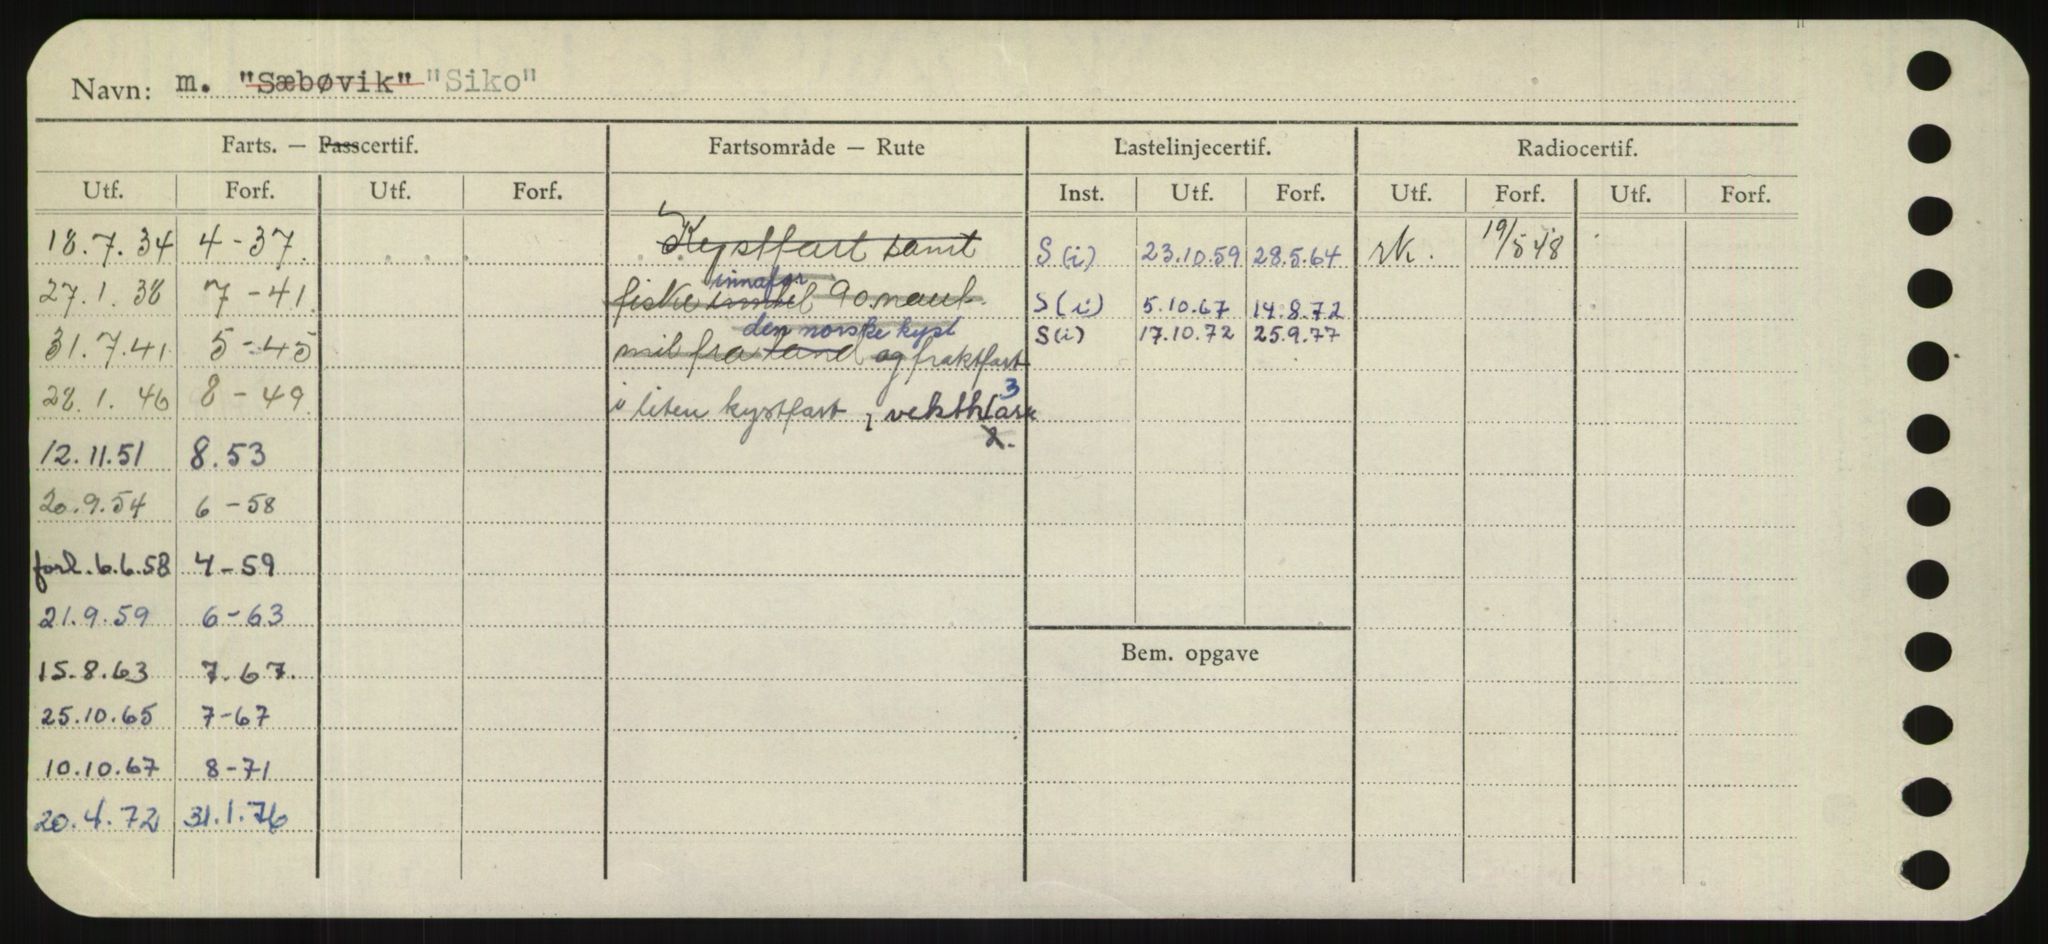 Navn: m. "Sæbøvik" "Siko"
Farts. — Passcertif. Fartsområde — Rute Lastelinjecertif. Radiocertif.
Utf. Forf. Utf. Forf. Inst. Utf. Forf. Utf. Forf. Utf. Forf.
18.7.34 4-37. Kystfart samt S(i) 23.10.59 28.5.64 rk. 19/5 48
innafor
27.1.38 7-41 fiske 90 naut. S(i) 5.10.67 14.8.72
den norske kyst S(i) 17.10.72 25.9.77
31.7.41 5-45 mil fra land og fraktfart
3
28.1.46 8-49 i liten kystfart, vektklasse
2.
12.11.51 8.53
20.9.54 6-58
forl. 6.6.58 4-59
21.9.59 6-63
Bem. opgave
15.8.63 7.67.
25.10.65 7-67
10.10.67 8-71
20.4.72 31.1.76